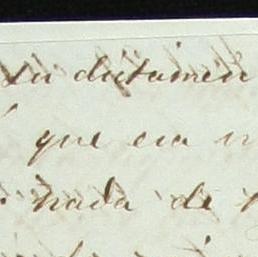 su dictamen
que era
nada de